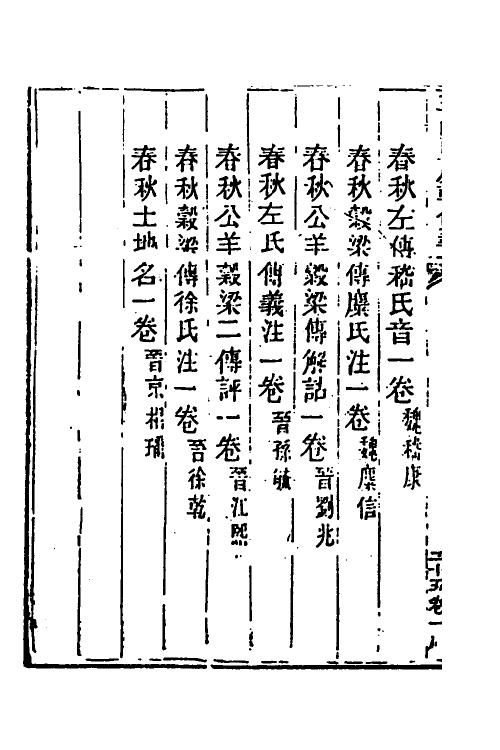 春秋左傳嵇氏音一卷 魏嵇康
春秋穀梁傳麋氏注一卷 魏麋信
春秋公羊穀梁傳解詁一卷 晉劉兆
春秋左氏傳義注一卷 晉孫毓
春秋公羊穀梁二傳評一卷 晉江熙
春秋穀梁傳徐氏注一卷 晉徐乾
春秋土地名一卷 晉京相璠